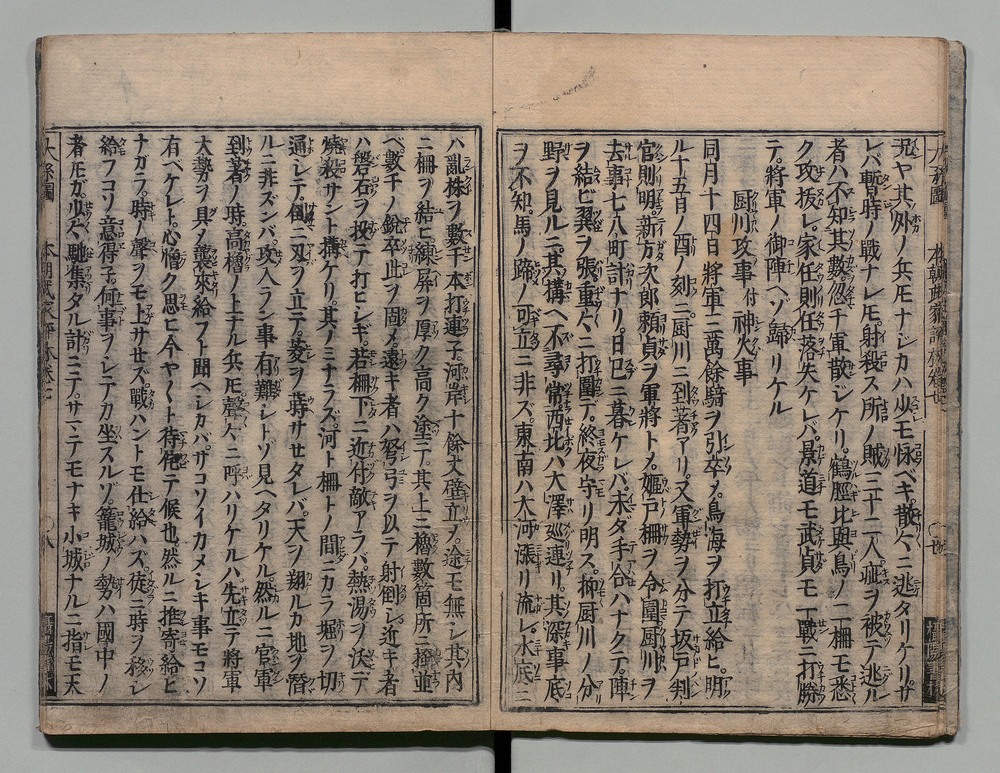 兄ヤ其ノ外ノ兵𪜈ナシカハ少モ怺ベキ。散〻ニ逃タリケリ。サ
レバ暫時ノ戰ナレ𪜈。射殺ス所ノ賊三十二人。疵ヲ被テ逃ル
者ハ不知其ノ數。忽ニ千軍散ジケリ。鶴脛比與鳥ノ二柵モ悉
ク攻拔レ。家任則任落失ケレバ。景道モ武貞モ一戰ニ打勝
テ。將軍ノ御陣ヘゾ歸リケル
厨川攻事 付 神火事
同月十四日將軍二萬餘騎ヲ引卒メ。鳥海ヲ打立給ヒ。明
ル十五日ノ酉ノ刻ニ厨川ニ到著アリ。又軍勢ヲ分テ坂戸判
官則明。新方次郎賴貞ヲ軍將トメ。嫗戸柵ヲ令圍厨川ヲ
去事七八町計ナリ。日已ニ暮ケレバ未ダ手合ハナクテ陣
ヲ結ビ翼ヲ張重〻ニ打圍テ。終夜守リ明ス。抑厨川ノ分
野ヲ見ルニ。其構ヘ不尋常西北ハ大澤廻連リ。其深事底
ヲ不知。馬ノ蹄ノ可立ニ非ズ。東南ハ大河漲リ流レ。水底ニ
ハ亂株ヲ數千本打連子。河岸十餘丈壁立メ。途モ無レ其内
ニ柵ヲ結ヒ練屏ヲ厚ク高ク塗テ。其上ニ櫓數箇所ニ搔並
ベ數千ノ銳卒此ヲ固メ。遠キ者ハ弩弓ヲ以テ射倒シ。近キ者
ハ磐石ヲ投テ打ヒシギ。若柵下ニ近付敵アラバ。熱湯ヲ沃デ
燒殺サント構ケリ。其ノミナラズ。河ト柵トノ間ニカラ堀ヲ切
通シテ。倒ニ刄ヲ立テ。菱ヲ蒔サセタレバ。天ヲ翔ルカ地ヲ潛
ルニ非ズンバ。攻入ラン事有難シトゾ見ヘタリケル。然ルニ官軍
到著ノ時。高櫓ノ上ナル兵𪜈。聲〻ニ呼ハリケルハ。先立テ將軍
大勢ヲ具メ襲來給フト聞ヘシカバ。サコソイカメシキ事モコソ
有ベケレト。心憎ク思ヒ今ヤ〱ト待侘テ候也然ルニ推寄給ヒ
ナガラ。時ノ聲ヲモ上サセズ。戰ハントモ仕給ハズ。徒ニ時ヲ移シ
給フコソ意得子。何事ヲシテカ坐スルゾ。籠城ノ勢ハ國中ノ
者𪜈ガ少〻馳集タル計ニテ。サマデモナキ小城ナルニ指モ天